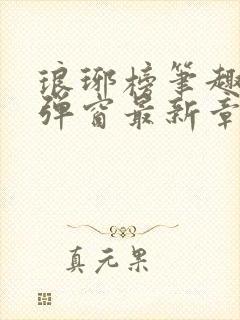 琅琊榜笔趣
弹窗最新章
真元果